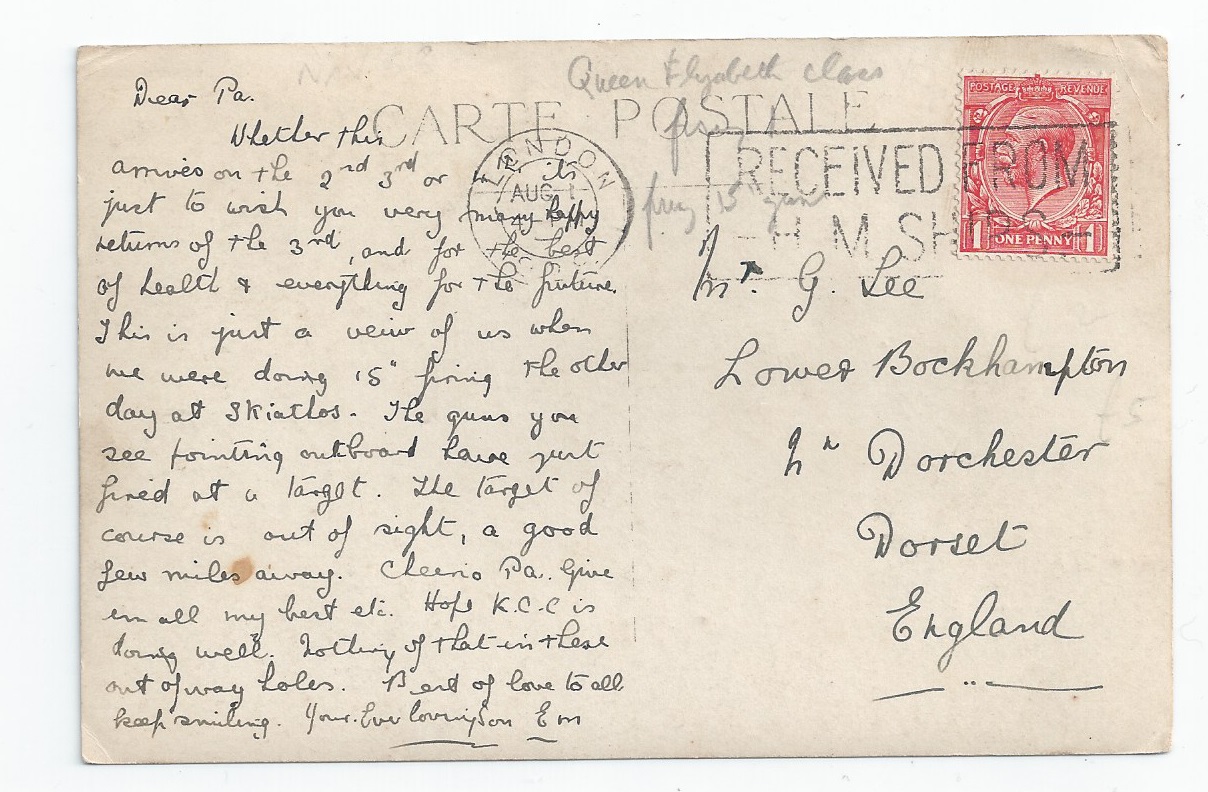 Queen Elyzabeth class
CARTE POSTALE
firing 15" guns
LONDON
AUG 1
RECEIVED FROM
H.M. SHIPS
POSTAGE REVENUE
1 ONE PENNY 1
Dear Pa.
Whether this
arrives on the 2nd 3rd or 4th its
just to wish you very many happy
returns of the 3rd, and for the best
of health & everything for the future.
This is just a veiw of us when
we were doing 15" firing the other
day at Skiathos. The guns you
see pointing outboard have just
fired at a target. The target of
course is out of sight, a good
few miles away. Cheerio Pa. Give
em all my best etc. Hope K.C.C is
doing well. Nothing of that in these
out of way holes. Best of love to all
keep smiling. Your Ever loving son Em
Mr. G. Lee
Lower Bockhampton
Nr Dorchester
Dorset
England
£5